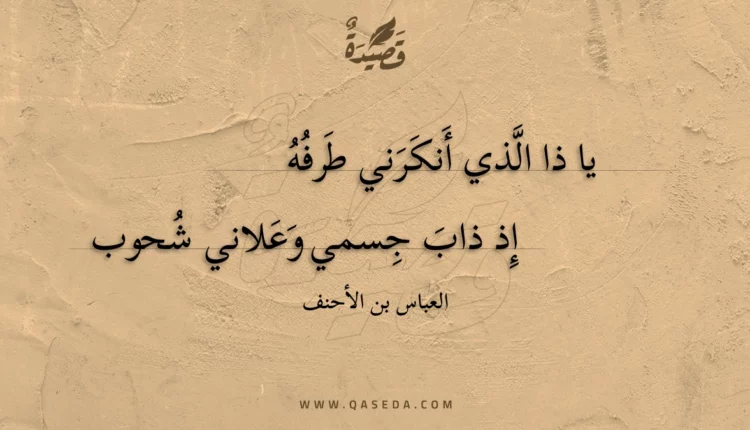 قَصِيدَةٌ
يا ذا الَّذي أَنكَرَني طَرفُهُ
إِذ ذابَ جِسمي وَعَلاني شُحوب
العباس بن الأحنف
WWW.QASEDA.COM